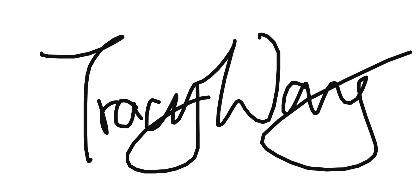 Tracy Wang